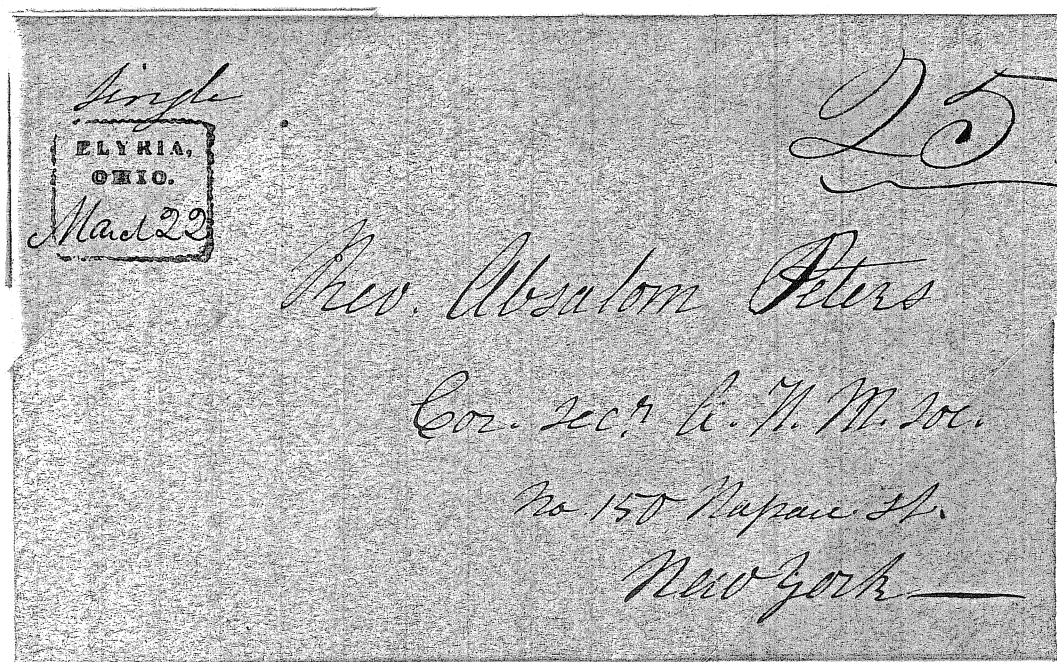 single
25
ELYRIA,
OHIO.
March 22
Rev. Absalom Peters
Cor. Secr. A. H. M. Soc.
No 150 Nassau St.
New York